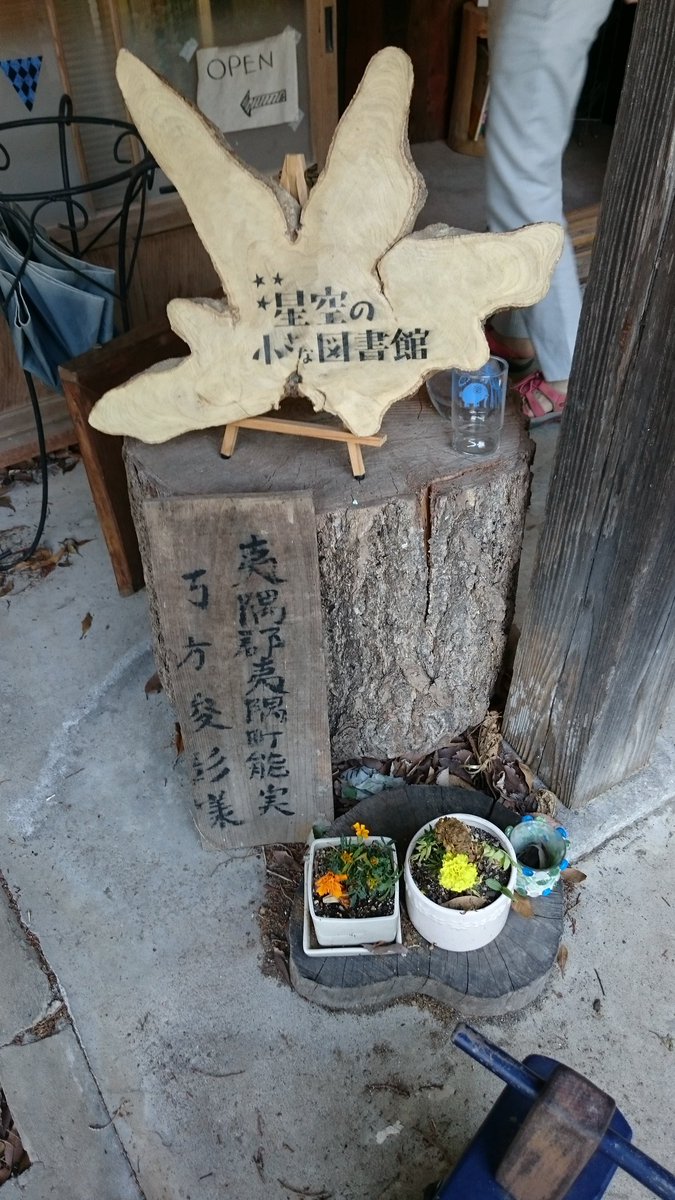 OPEN
星空の
小さな図書館
夷隅郡夷隅町能実
弓方愛彩様